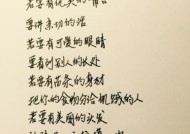 若要有优美的嘴唇
要讲亲切的话
若要有可爱的眼睛
要看到别人的好处
若要有苗条的身材
把你的食物分给饥饿的人
若要有美丽的头发